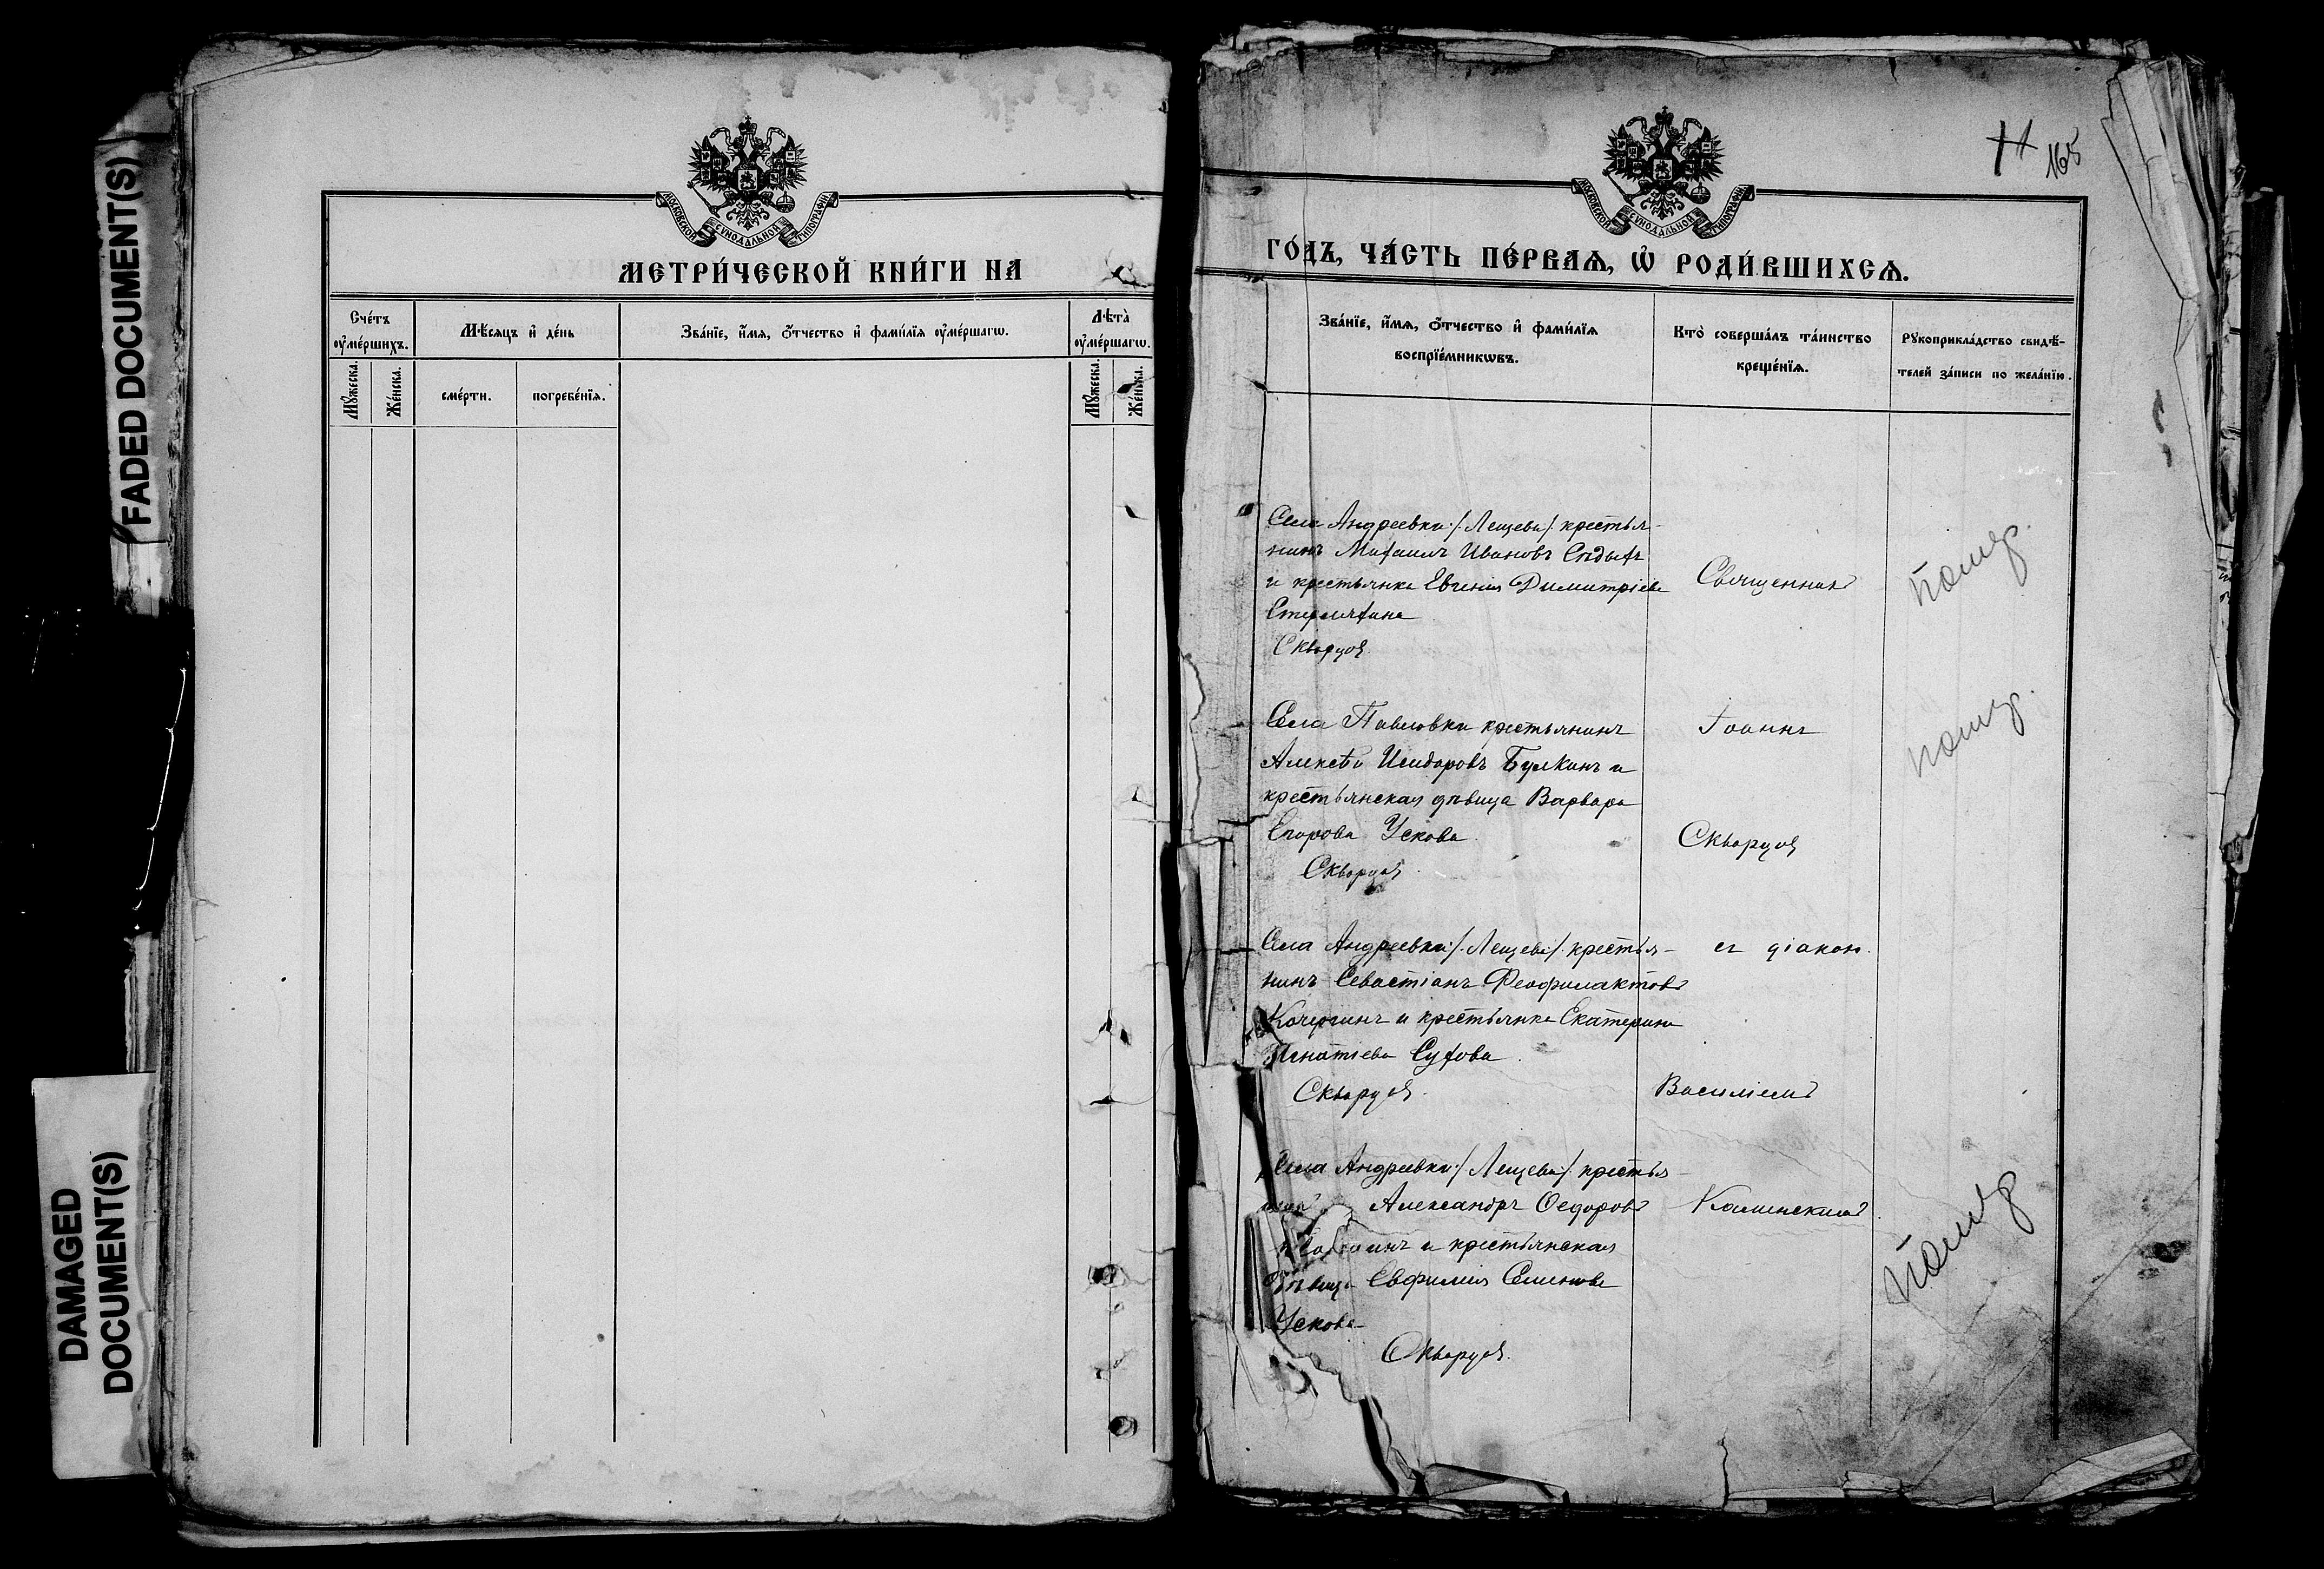 FADED DOCUMENT(S)
DAMAGED
DOCUMENT(S)
МОСКОВСКОЙ СУНОДАЛЬНОЙ ТИПОГРАФІИ
МЕТРИ́ЧЕСКОЙ КНИ́ГИ НА
Сче́тъ
ᲂу҆ме́ршихъ.
Мѣ́сяцъ и҆ де́нь
Зва́нїе, и҆́мѧ, ѻ҆́тчество и҆ фами́лїѧ ᲂу҆ме́ршагѡ.
Лѣ̑та̀
ᲂу҆ме́ршагѡ.
Мꙋ́жеска.
Же́нска.
сме́рти.
погребе́нїѧ.
Мꙋ́жеска.
Же́нска.
11
165
МОСКОВСКОЙ СУНОДАЛЬНОЙ ТИПОГРАФІИ
ГО́ДЪ, ЧА́СТЬ ПЕ́РВАѦ, Ѡ҆ РОДИ́ВШИХСѦ.
Зва́нїе, и҆́мѧ, ѻ҆́тчество и҆ фами́лїѧ
воспрїе́мникѡвъ.
Кто̀ соверша́лъ та́инство
креще́нїѧ.
Рꙋкоприкла́дство свидѣ́-
телей за́писи по жела́нїю.
Села Андреевки /:Лещева:/ крестья-
нинъ Михаилъ Ивановъ Сѣдыхъ
и крестьянка Евгенія Димитріева
Стерляхина
Скворцов
Священник
помер.
Села Павловки крестьянинъ
Алексѣй Исидоровъ Булкинъ и
крестьянская дѣвица Варвара
Егорова Ускова.
Скворцов
Іоаннъ
Скворцов
помер.
Села Андреевки /:Лещева:/ крестья-
нинъ Севастіанъ Феофилактовъ
Кочергинъ и крестьянка Екатерина
Игнатіева Сухова.
Скворцов.
съ діакон.
Василіемъ
Села Андреевки /:Лещева:/ крестья-
нинъ Александръ Ѳедоровъ
и крестьянская
дѣвица Евфимія Семенова
Ускова
Скворцов.
Каминскимъ
помер